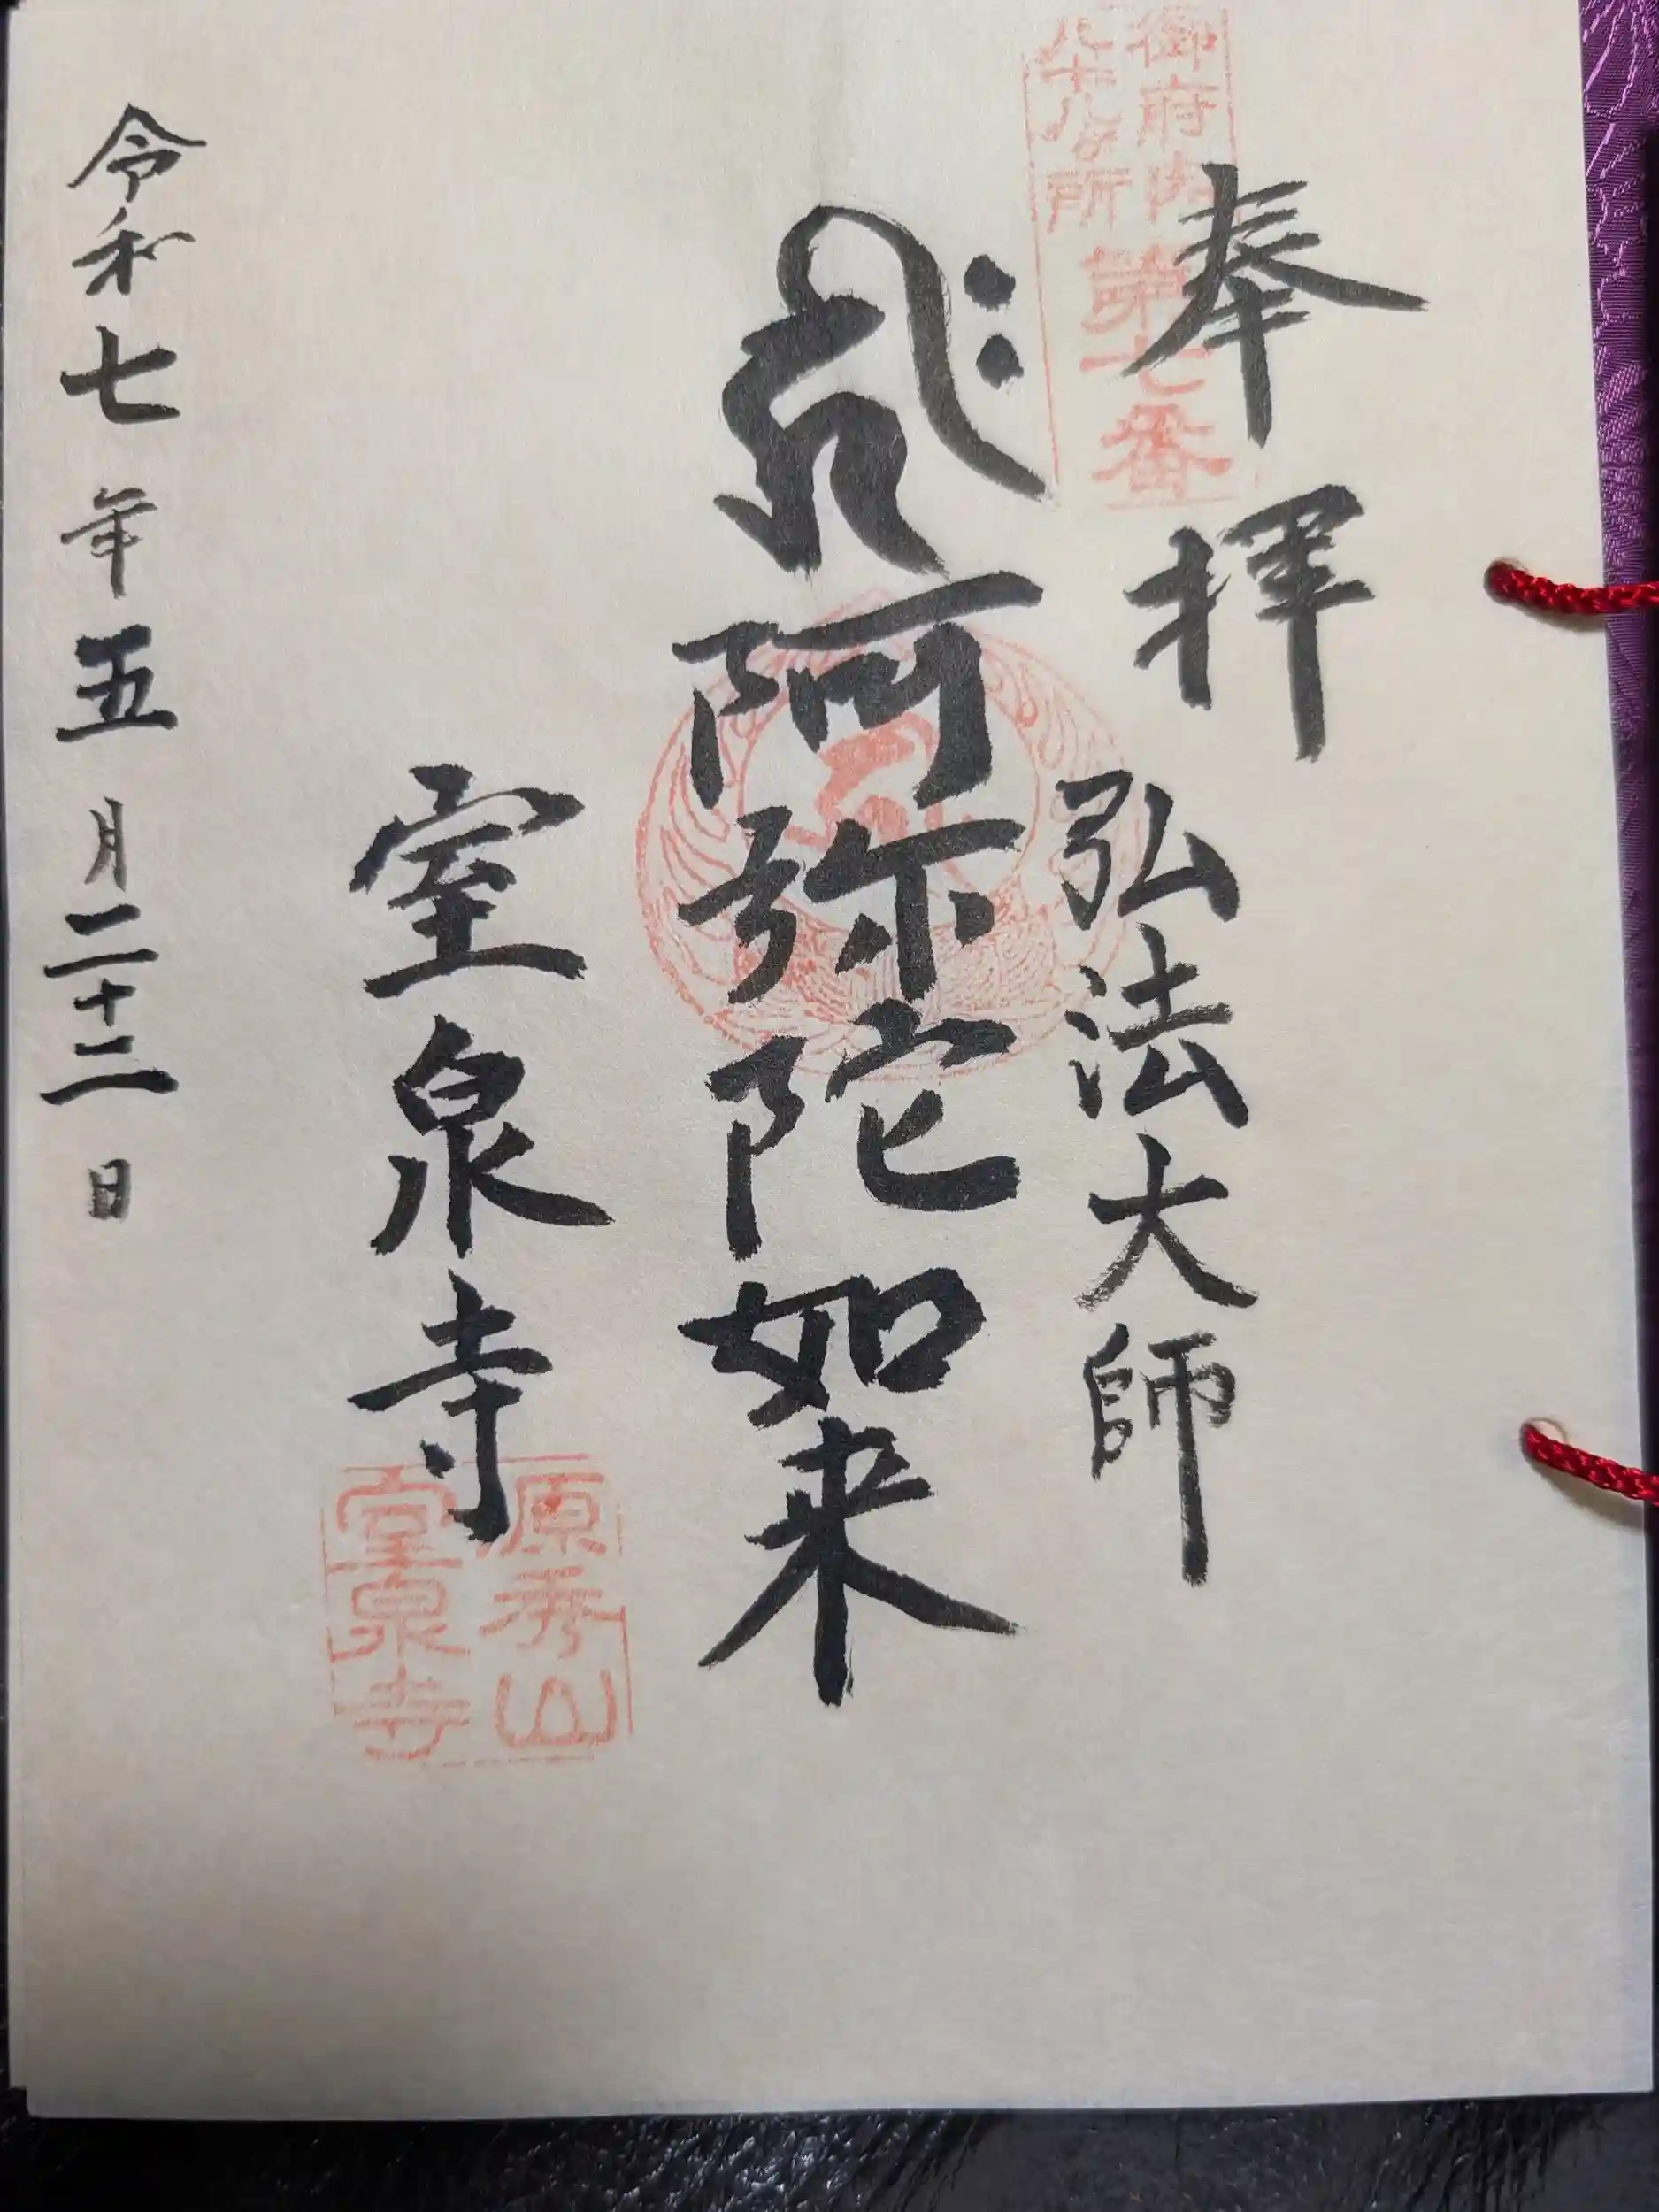 御府内
八十八ヶ所
第七番
奉拝
弘法大師
阿弥陀如来
室泉寺
源秀山
室泉寺
令和七年五月二十二日